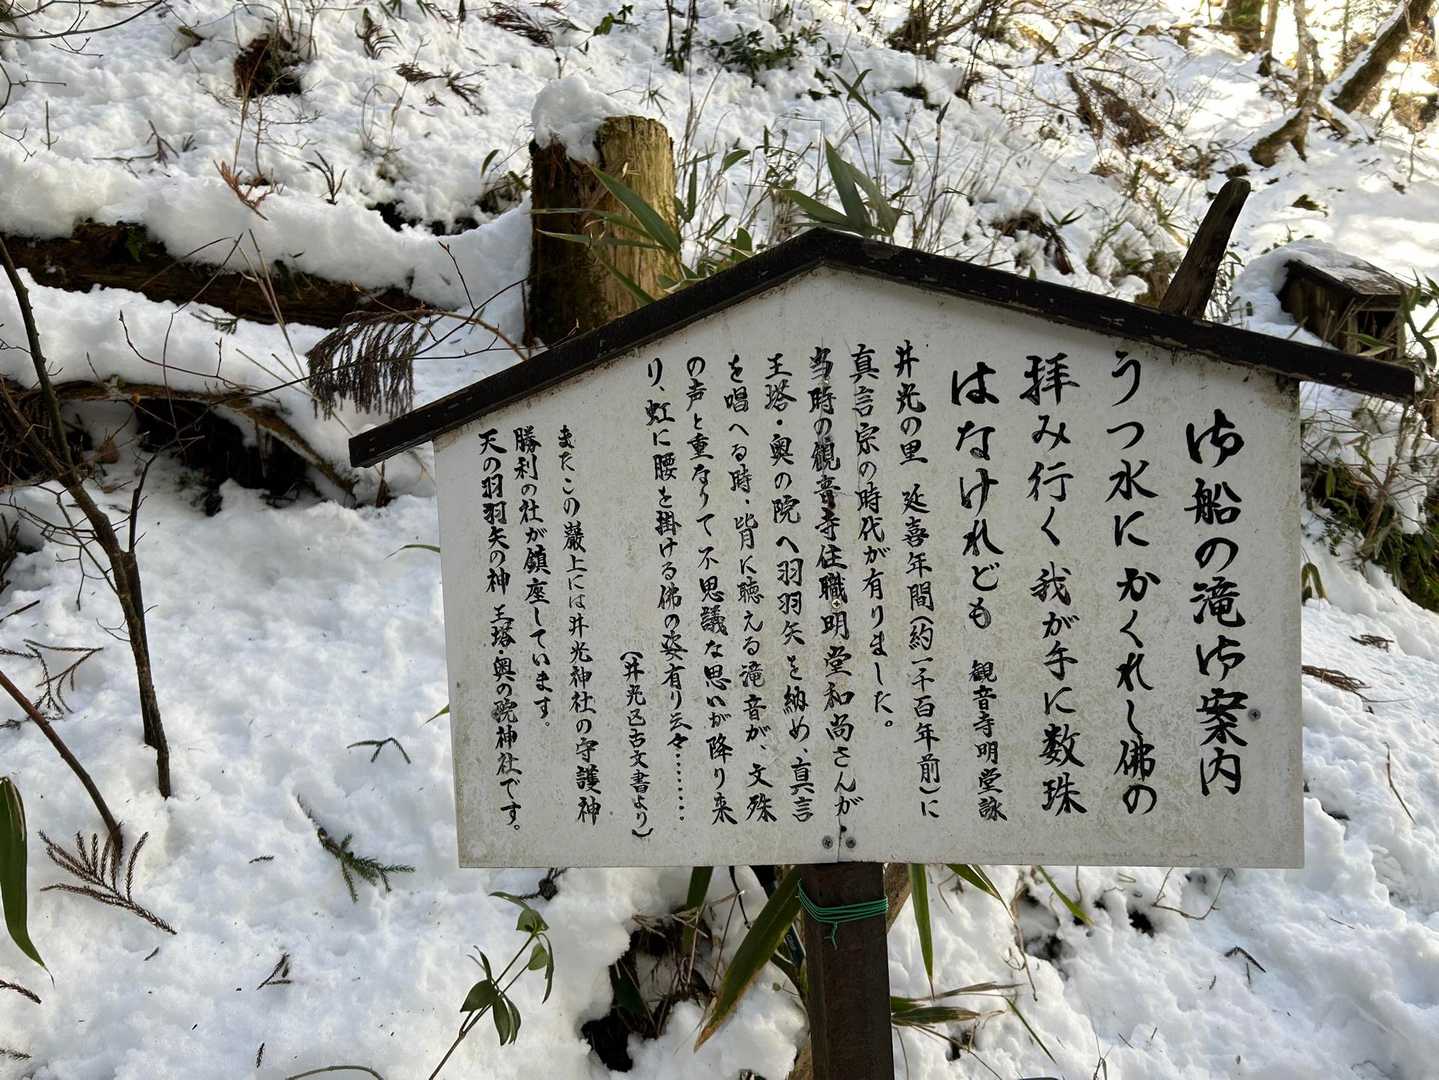 御船の滝御案内
うつ水にかくれし佛の
拝み行く我が手に数珠
はなけれども 観音寺明堂詠
井光の里 延喜年間(約一千百年前)に
真言宗の時代が有りました。
当時の観音寺住職明堂和尚さんが、
王塔・奥の院へ羽羽矢を納め、真言
を唱へる時、皆に聴える滝音が、文殊
の声と重なりて不思議な思いが降り来
り、虹に腰を掛ける佛の姿有り云々………
(井光区古文書より)
またこの巌上には井光神社の守護神
勝利の社が鎮座しています。
天の羽羽矢の神 王塔・奥の院神社です。